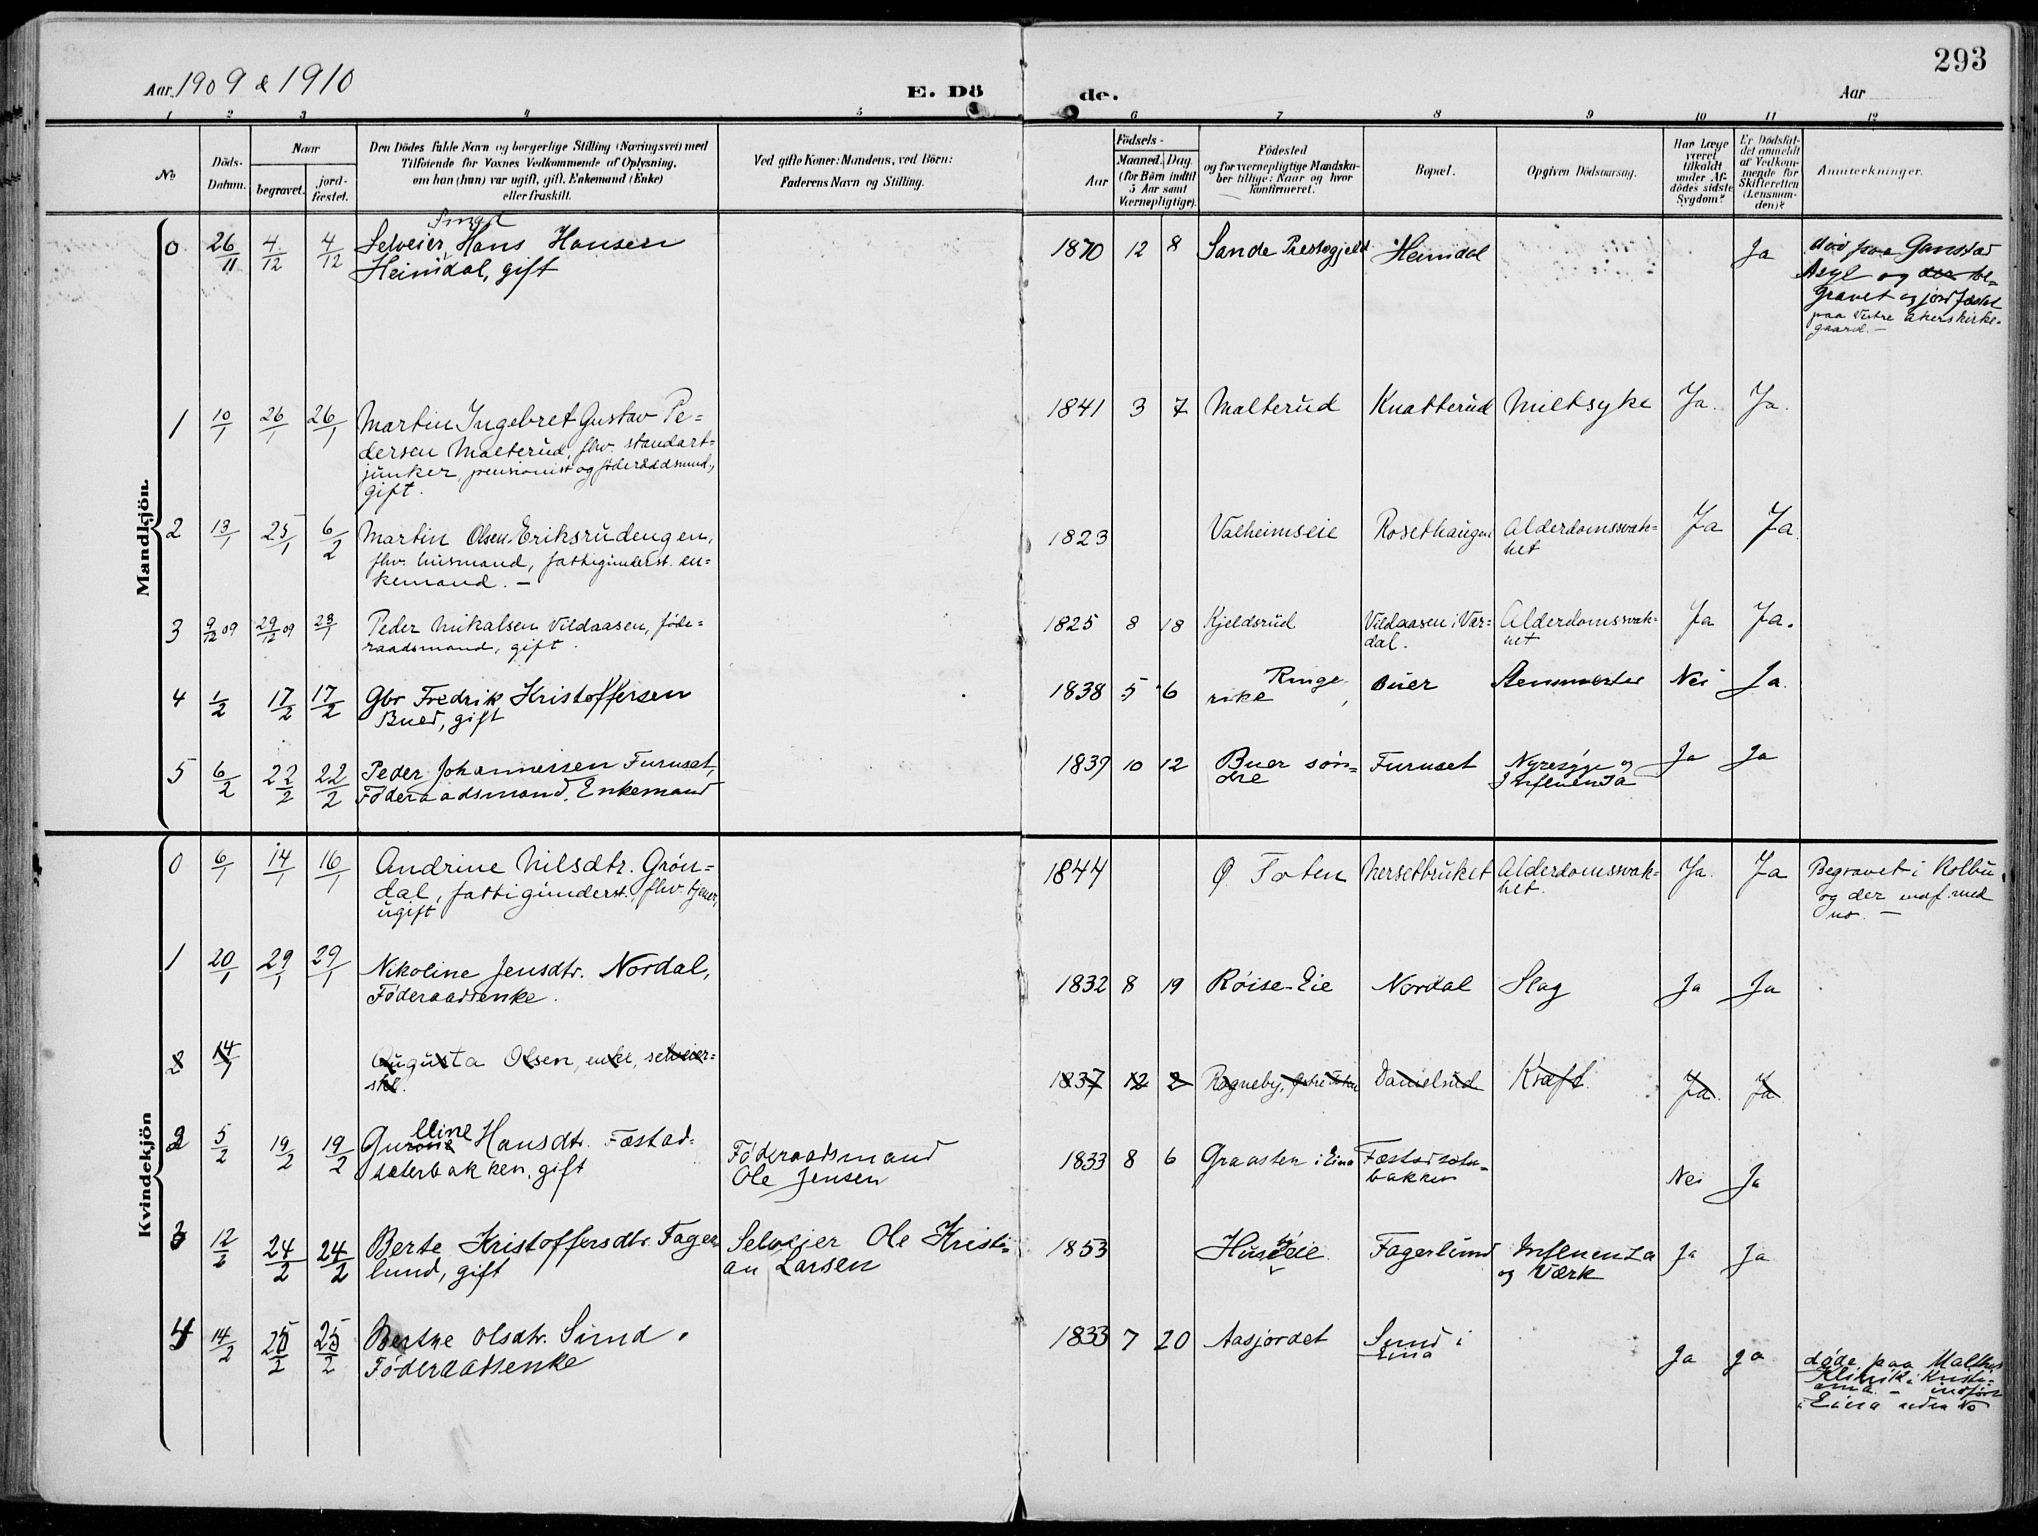 293
Aar 1909 & 1910
E. Dö
de.
Aar
1 2 3 4 5 6 7 8 9 10 11 12
No
Döds-
Datum.
Naar
begravet.
jord-
fæstet.
Den Dödes fulde Navn og borgerlige Stilling (Næringsvei) med
Tilföiende for Voxnes Vedkommende af Oplysning,
om han (hun) var ugift, gift, Enkemand (Enke)
eller fraskilt.
Ved gifte Koner: Mandens, ved Börn:
Faderens Navn og Stilling.
Födsels-
Aar
Maaned. Dag.
(for Börn indtil
5 Aar samt
Værnepligtige).
Födested
og for værnepligtige Mandska-
ber tillige: Naar og hvor
Konfirmeret.
Bopæl.
Opgiven Dödsaarsag.
Har Læge
været
tilkaldt
under Af-
dödes sidste
Sygdom?
Er Dödsfal-
det anmeldt
af Vedkom-
mende for
Skifteretten
(Lensman-
den)?
Anmærkninger.
Mandkjön.
0 26/11 4/12 4/12 Selveier Hans Hansen
Heimdal, gift
1870 12 8 Sande Prestegjeld Heimdal Ja
død paa Gaustad
Asyl og der be-
gravet og jordfæstet
paa Vestre Akers kirke-
gaard. -
1 10/1 26/1 26/1 Martin Ingebret Gustav Pe-
dersen Malterud, fhv. standart-
junker, pensionist og föderaadsmand,
gift.
1841 3 7 Malterud Knatterud Miltsyke Ja. Ja.
2 13/1 25/1 6/2 Martin Olsen Eriksrudengen,
fhv. husmand, fattigunderst. en-
kemand. -
1823 Valheimseie Rosethaugen Alderdomssvak-
het Ja Ja.
3 9/12 09 29/12 09 23/1 Peder Mikalsen Vildaasen, føde-
raadsmand, gift.
1825 8 18 Kjeldsrud Vildaasen i Var-
dal. Alderdomssvak-
het Ja Ja.
4 1/2 17/2 17/2 Gbr Fredrik Kristoffersen
Buer, gift
1838 5 6 Ringe-
rike Buer Stensmerter Nei Ja.
5 6/2 22/2 22/2 Peder Johannessen Furuset,
Föderaadsmand, Enkemand
1839 10 12 Buer søn-
dre Furuset Nyresyge og
Influenza Ja Ja
Kvindekjön
0 6/1 14/1 16/1 Andrine Nilsdtr. Grön-
dal, fattigunderst., fhv. tjener,
ugift
1844 Ø. Toten Nersetbruket Alderdomssvak-
het. Ja. Ja Begravet i Kolbu
og der indf. med
no. -
1 20/1 29/1 29/1 Nikoline Jensdtr. Nordal,
Föderaadsenke.
1832 8 19 Røise-Eie Nordal Slag Ja Ja
2 14/1 Augusta Olsen, enke, selveier-
ske.
1837 12 2 Rogneby, Østre Toten Danielsrud Kræft. Ja Ja
2 5/2 19/2 19/2 Hansdtr. Fæstad-
sæterbakken, gift
Föderaadsmand
Ole Jensen
1833 8 6 Graasten i Eina Fæstadsæter-
bakken Nei Ja
3 12/2 24/2 24/2 Berte Kristoffersdtr. Fager-
lund, gift
Selveier Ole Kristi-
an Larsen
1853 Husebyeie Fagerlund Influenza
og Værk Ja Ja
4 14/2 25/2 25/2 Berthe Olsdtr. Sund.
Föderaadsenke
1833 7 20 Aasjordet Sund i
Eina Ja ja
døde paa Malthes
Klinik i Kristi-
ania. - indført
i Eina uden No